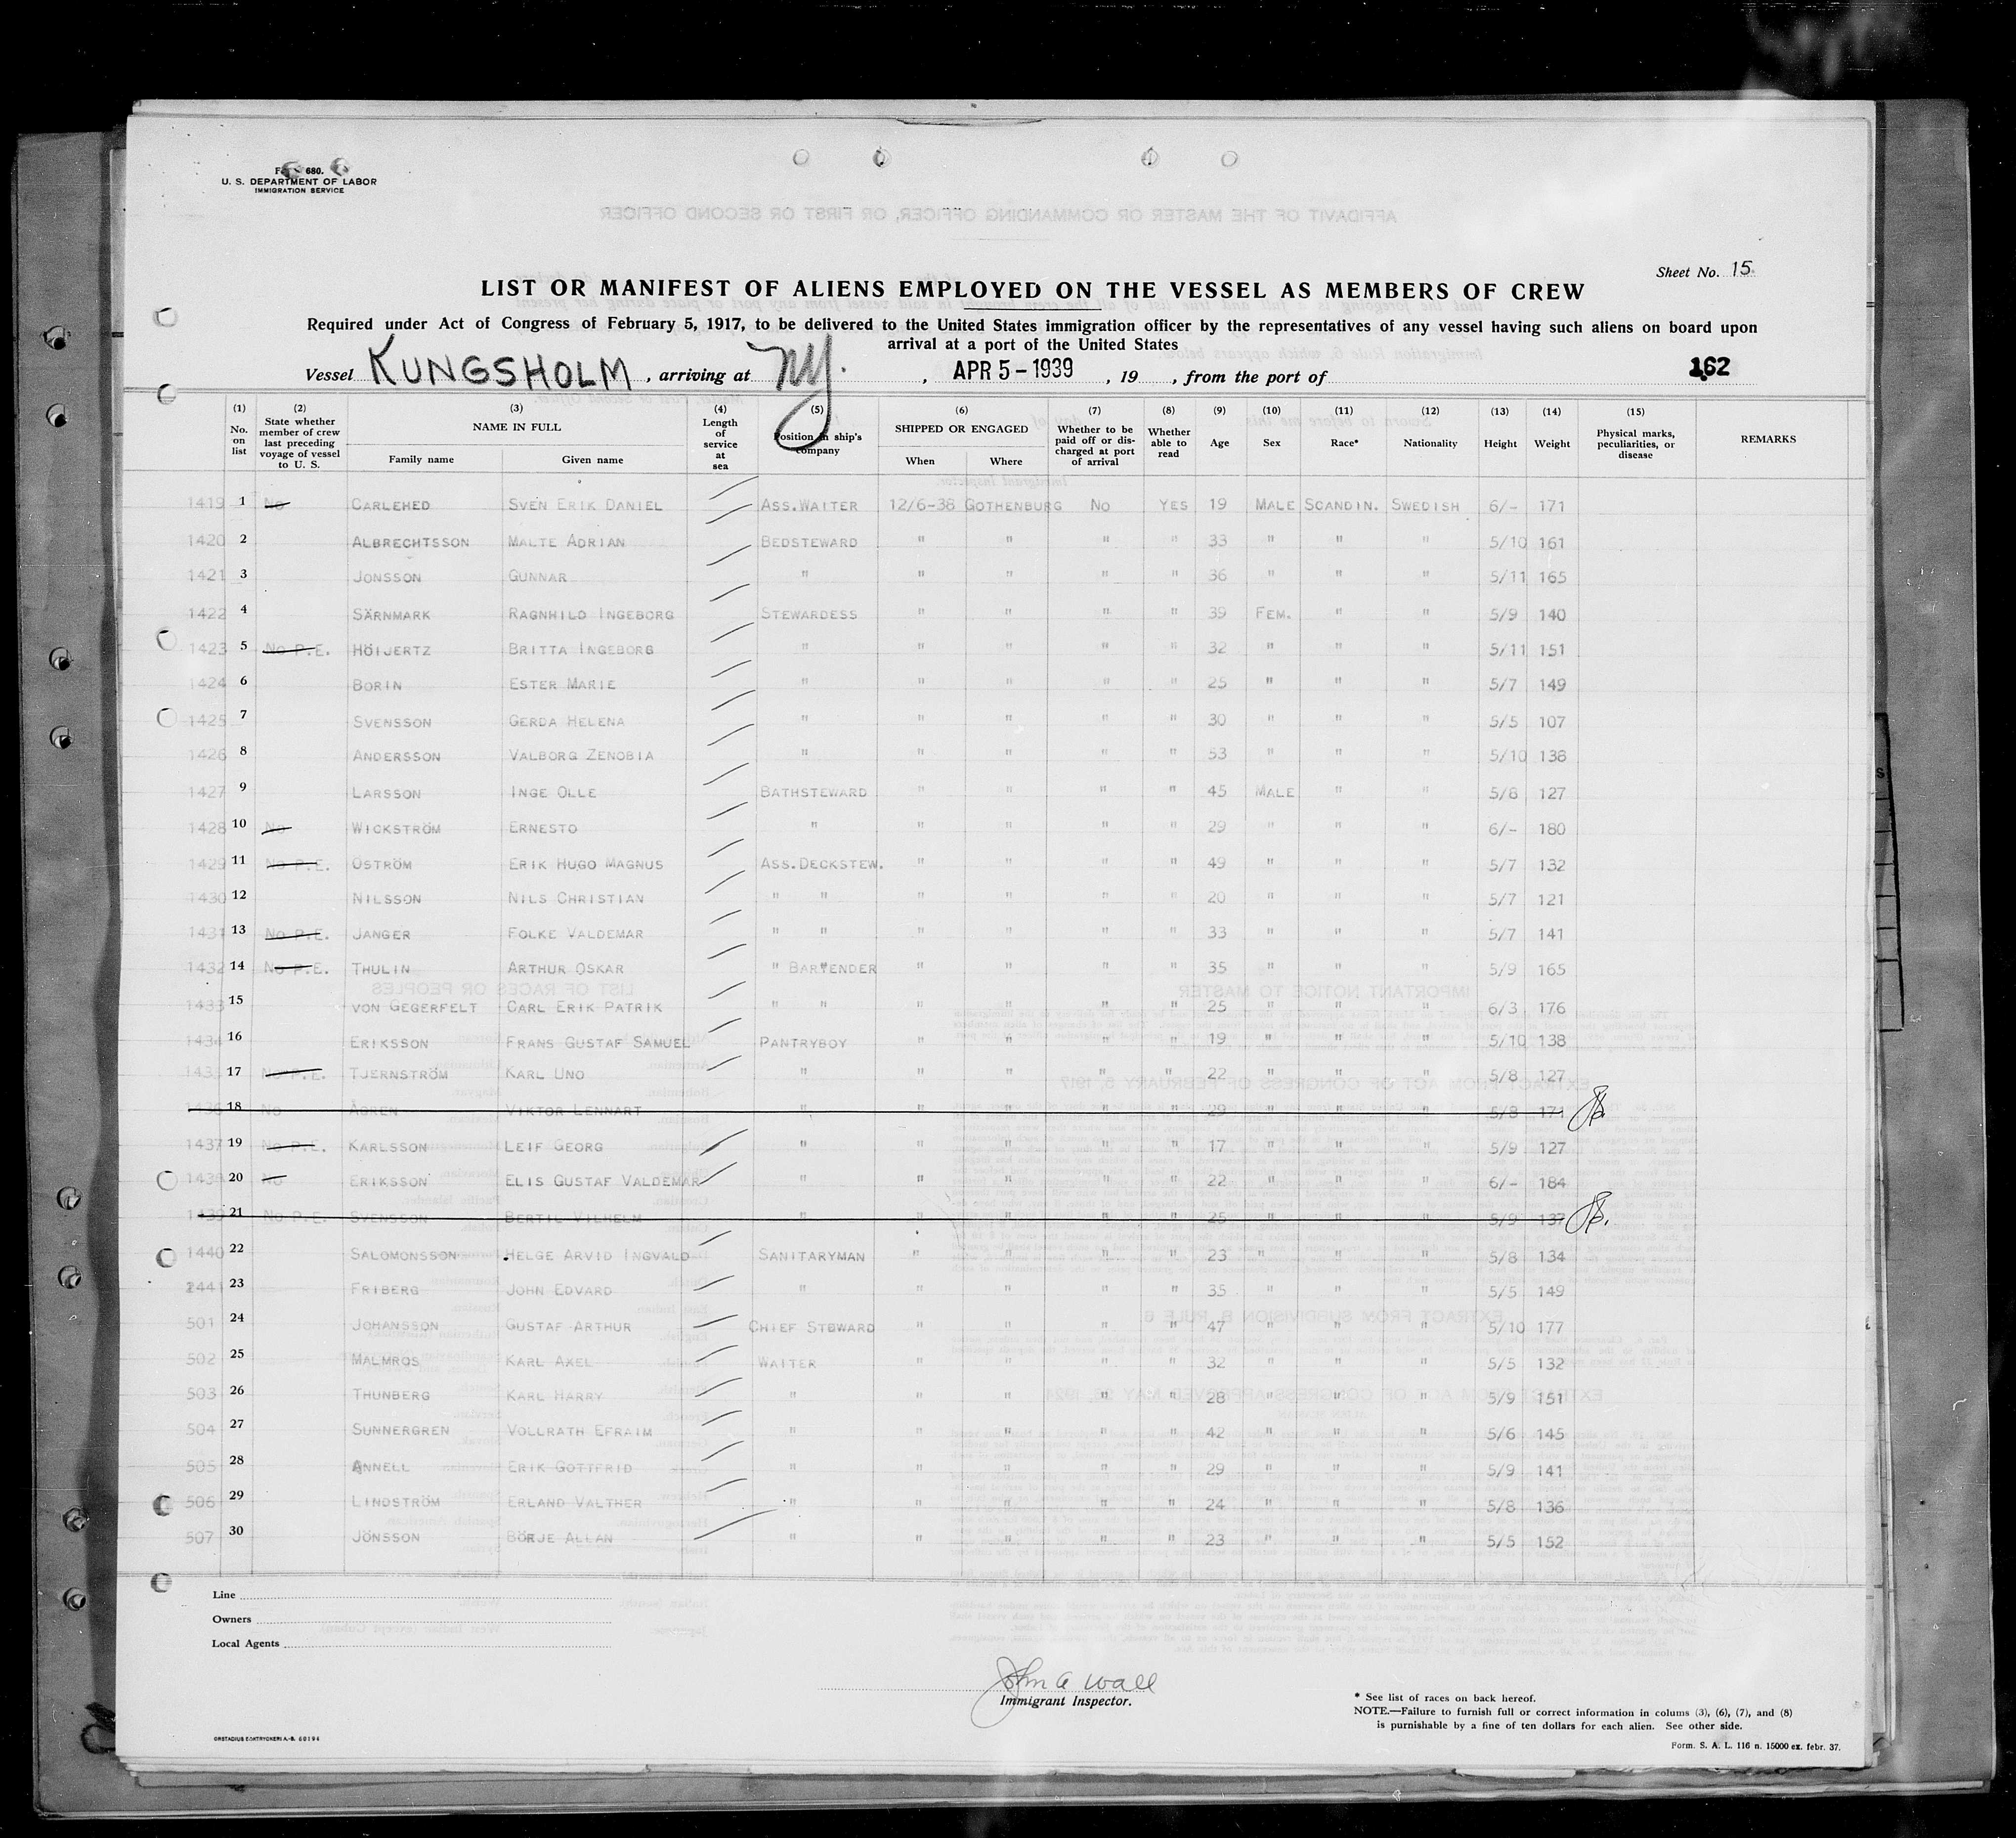 680.
U. S. DEPARTMENT OF LABOR
IMMIGRATION SERVICE
Sheet No. 15
LIST OR MANIFEST OF ALIENS EMPLOYED ON THE VESSEL AS MEMBERS OF CREW
Required under Act of Congress of February 5, 1917, to be delivered to the United States immigration officer by the representatives of any vessel having such aliens on board upon
arrival at a port of the United States
Vessel KUNGSHOLM, arriving at NY. , APR 5-1939 , 19 , from the port of 162
(1) No. on list (2) State whether member of crew last preceding voyage of vessel to U. S. (3) NAME IN FULL Family name Given name (4) Length of service at sea (5) Position in ship's company (6) SHIPPED OR ENGAGED When Where (7) Whether to be paid off or discharged at port of arrival (8) Whether able to read (9) Age (10) Sex (11) Race* (12) Nationality (13) Height (14) Weight (15) Physical marks, peculiarities, or disease REMARKS
1419 1 No CARLEHED SVEN ERIK DANIEL ASS.WAITER 12/6-38 GOTHENBURG NO YES 19 MALE SCANDIN. SWEDISH 6/- 171
1420 2 ALBRECHTSSON MALTE ADRIAN BEDSTEWARD " " " " 33 " " " 5/10 161
1421 3 JONSSON GUNNAR " " " " " 36 " " " 5/11 165
1422 4 SÄRNMARK RAGNHILD INGEBORG STEWARDESS " " " " 39 FEM. " " 5/9 140
1423 5 No P.E. HÖIJERTZ BRITTA INGEBORG " " " " " 32 " " " 5/11 151
1424 6 BORIN ESTER MARIE " " " " " 25 " " " 5/7 149
1425 7 SVENSSON GERDA HELENA " " " " " 30 " " " 5/5 107
1426 8 ANDERSSON VALBORG ZENOBIA " " " " " 53 " " " 5/10 138
1427 9 LARSSON INGE OLLE BATHSTEWARD " " " " 45 MALE " " 5/8 127
1428 10 No WICKSTRÖM ERNESTO " " " " " 29 " " " 6/- 180
1429 11 No P.E. ÖSTRÖM ERIK HUGO MAGNUS ASS.DECKSTEW. " " " " 49 " " " 5/7 132
1430 12 NILSSON NILS CHRISTIAN " " " " " " 20 " " " 5/7 121
1431 13 No P.E. JANGER FOLKE VALDEMAR " " " " " " 33 " " " 5/7 141
1432 14 No P.E. THULIN ARTHUR OSKAR " BARTENDER " " " " 35 " " " 5/9 165
1433 15 VON GEGERFELT CARL ERIK PATRIK " " " " " " 25 " " " 6/3 176
1434 16 ERIKSSON FRANS GUSTAF SAMUEL PANTRYBOY " " " " 19 " " " 5/10 138
1435 17 No P.E. TJERNSTRÖM KARL UNO " " " " " 22 " " " 5/8 127
1436 18 No ÅGREN VIKTOR LENNART " " " " " 29 " " " 5/8 171
1437 19 No P.E. KARLSSON LEIF GEORG " " " " " 17 " " " 5/9 127
1438 20 No ERIKSSON ELIS GUSTAF VALDEMAR " " " " " 22 " " " 6/- 184
1439 21 No P.E. SVENSSON BERTIL VILHELM " " " " " 25 " " " 5/9 137
1440 22 SALOMONSSON HELGE ARVID INGVALD SANITARYMAN " " " " 23 " " " 5/8 134
1441 23 FRIBERG JOHN EDVARD " " " " " 35 " " " 5/5 149
501 24 JOHANSSON GUSTAF ARTHUR CHIEF STEWARD " " " " 47 " " " 5/10 177
502 25 MALMROS KARL AXEL WAITER " " " " 32 " " " 5/5 132
503 26 THUNBERG KARL HARRY " " " " " 28 " " " 5/9 151
504 27 SUNNERGREN VOLLRATH EFRAIM " " " " " 42 " " " 5/6 145
505 28 ANNELL ERIK GOTTFRID " " " " " 29 " " " 5/9 141
506 29 LINDSTRÖM ERLAND VALTHER " " " " " 24 " " " 5/8 136
507 30 JÖNSSON BÖRJE ALLAN " " " " " 23 " " " 5/5 152
Line
Owners
Local Agents
John A Wall
Immigrant Inspector.
* See list of races on back hereof.
NOTE.—Failure to furnish full or correct information in colums (3), (6), (7), and (8)
is purnishable by a fine of ten dollars for each alien. See other side.
Form. S. A. L. 116 n. 15000 ex. febr. 37.